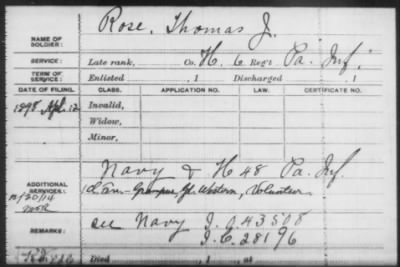 NAME OF SOLDIER: Rose, Thomas J.
SERVICE: Late rank, Co. H. 6 Reg't Pa. Inf.
TERM OF SERVICE: Enlisted , 1 Discharged , 1
DATE OF FILING. CLASS. APPLICATION NO. LAW. CERTIFICATE NO.
1898 Apl. 12 Invalid,
Widow,
Minor,
Navy & H 48 Pa. Inf.
ADDITIONAL SERVICES: Grampus, Gt. Western, Volunteer
REMARKS: see Navy
Died , 1 at